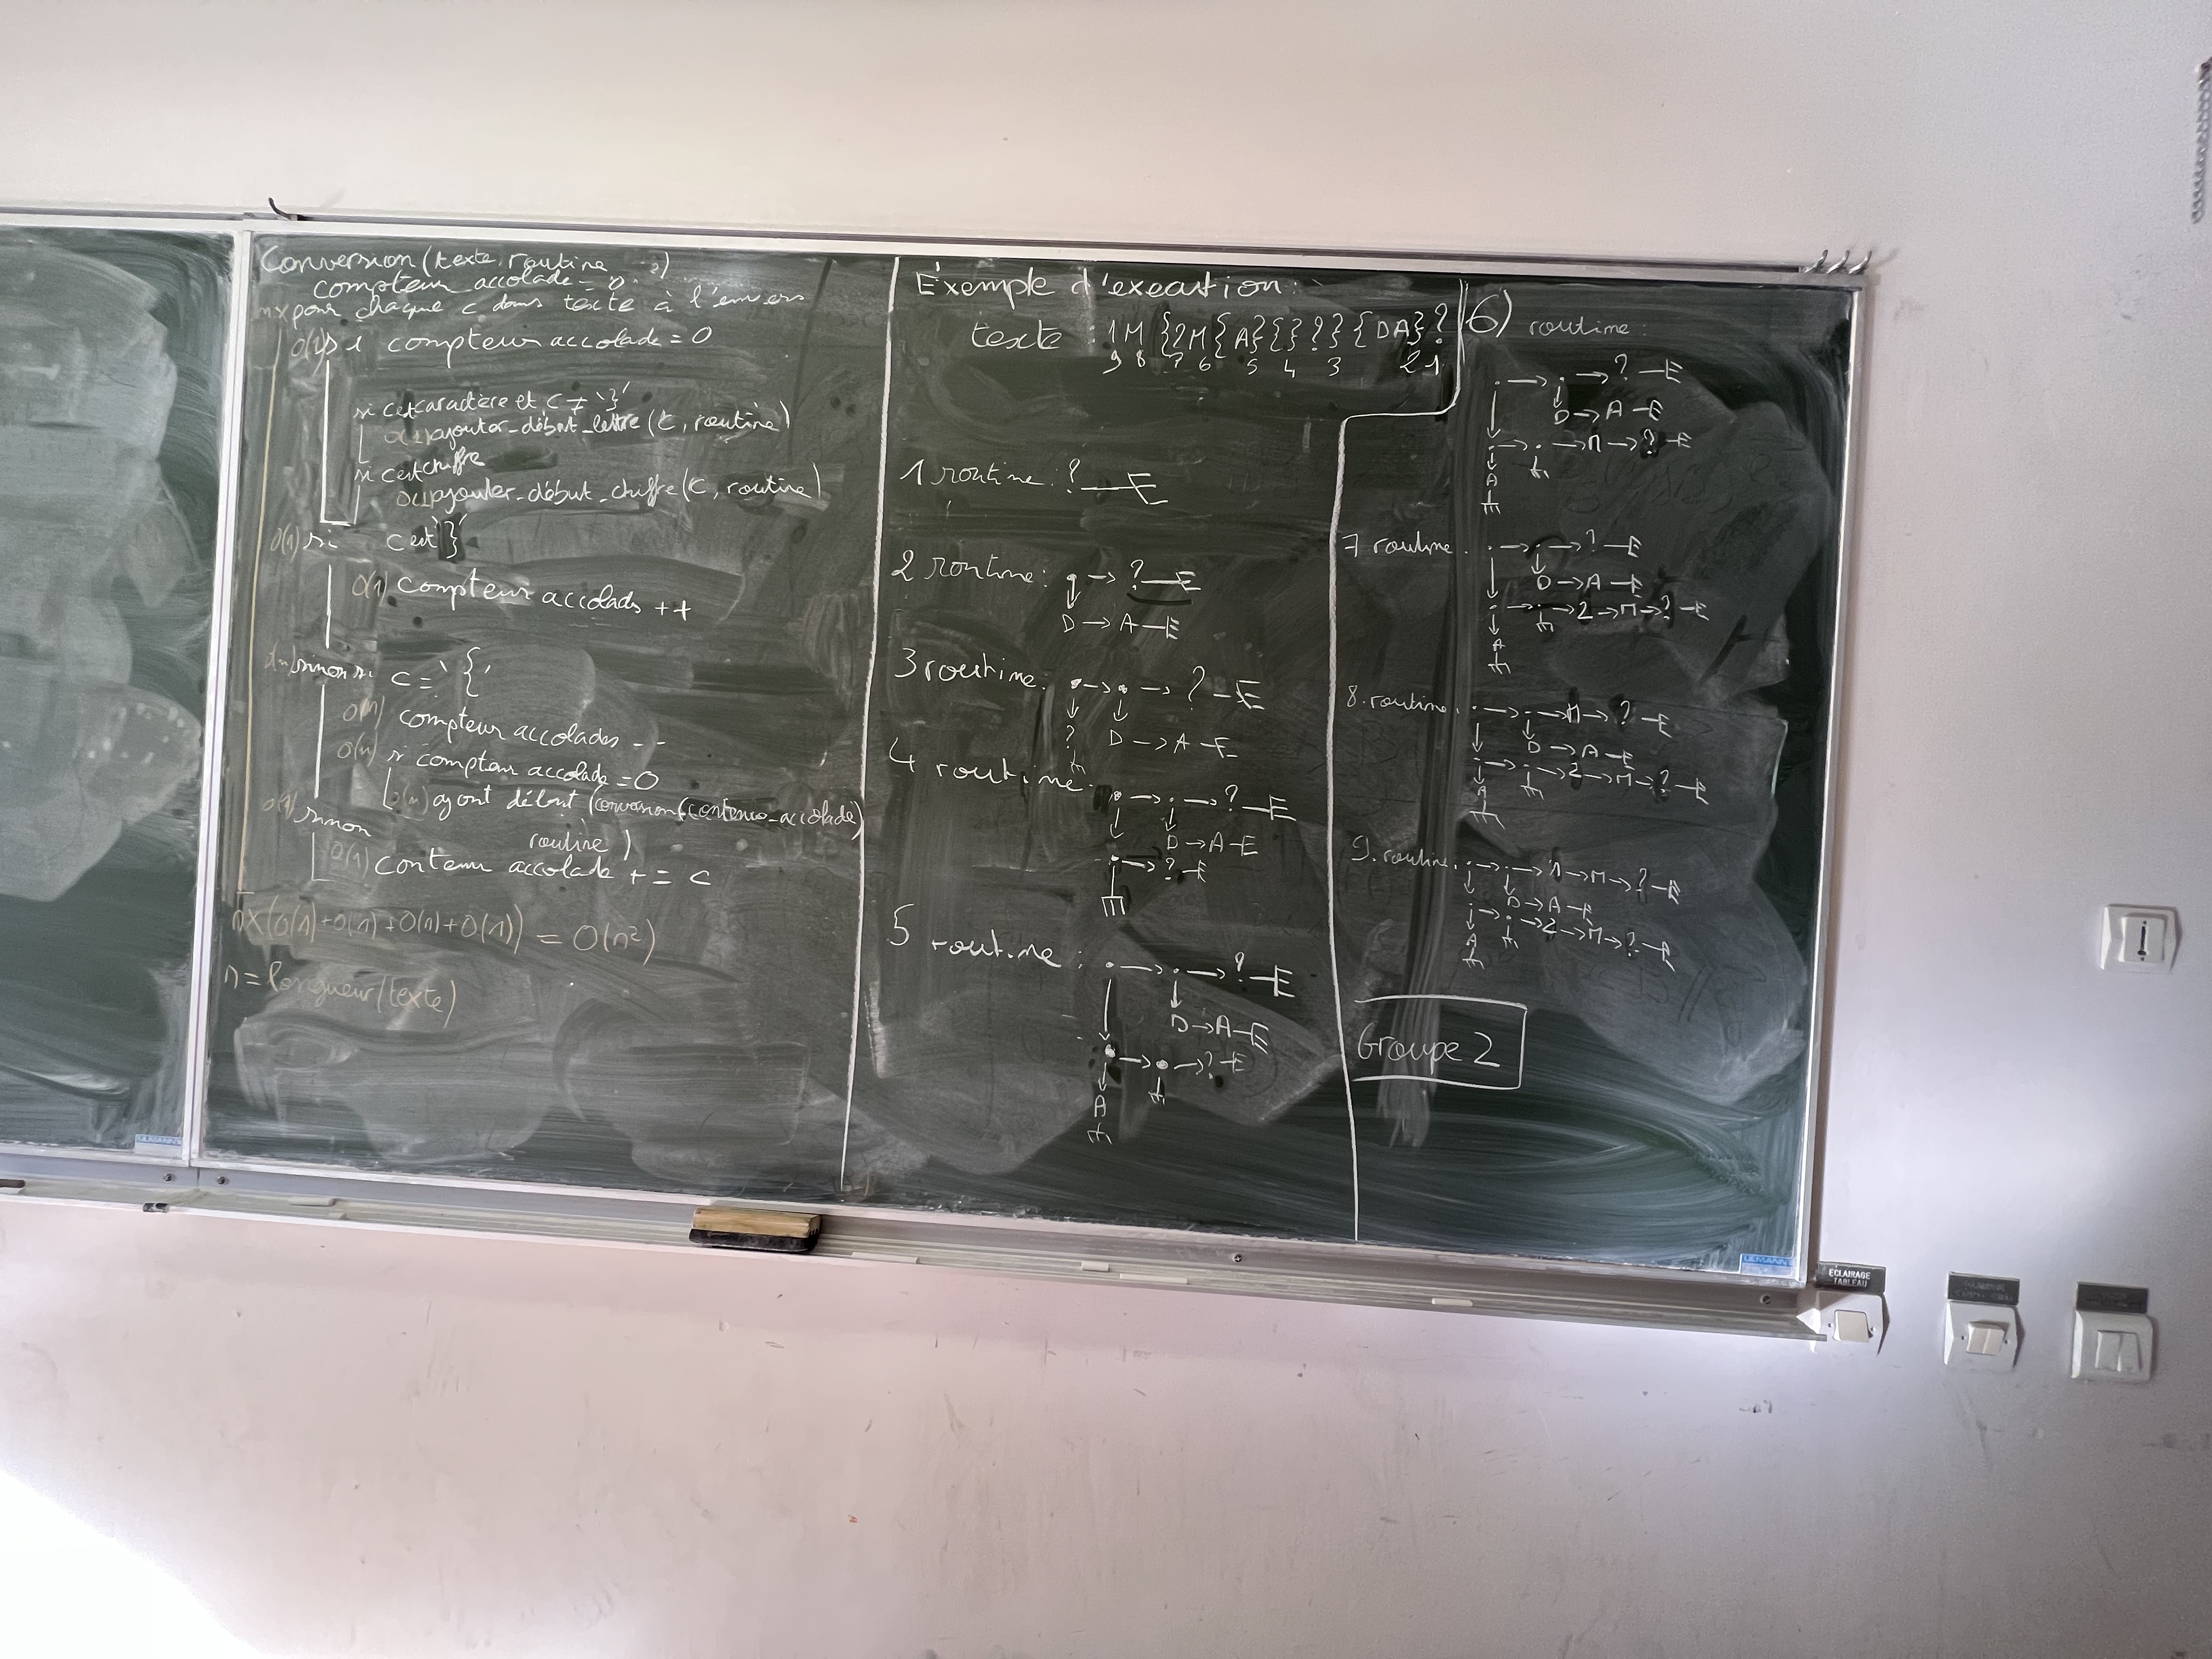 Conversion (texte, routine)
compteur accolade = 0
nx pour chaque c dans texte à l'envers
O(1) si compteur accolade = 0
si c est caractère et c ≠ '}'
O(1) ajouter_début_lettre (c, routine)
si c est chiffre
O(1) ajouter_début_chiffre (c, routine)
O(1) si c est '}'
O(1) compteur accolads ++
sinon si c = '{'
O(1) compteur accolades --
O(n) si compteur accolade = 0
O(n) ajout début (conversion (contenu_accolade)
routine)
O(1) sinon
O(1) contenu accolade += c
nx(O(1)+O(1)+O(n)+O(1)) = O(n²)
n = longueur(texte)
Exemple d'execution:
texte : 1M{2M{A}{}?}{DA}?
9 8 7 6 5 4 3 2 1
1 routine: ?
2 routine: . → ?
D → A
3 routine: . → . → ?
? D → A
4 routine: . → . → ?
D → A
. → ?
5 routine: . → . → ?
D → A
. → . → ?
A
6) routine:
. → . → ?
D → A
. → . → M → ?
A
7 routine: . → . → ?
D → A
. → . → 2 → M → ?
A
8. routine: . → . → M → ?
D → A
. → . → 2 → M → ?
A
9. routine: . → . → 1 → M → ?
D → A
. → . → 2 → M → ?
A
Groupe 2
ULMANN
ULMANN
ECLAIRAGE
TABLEAU